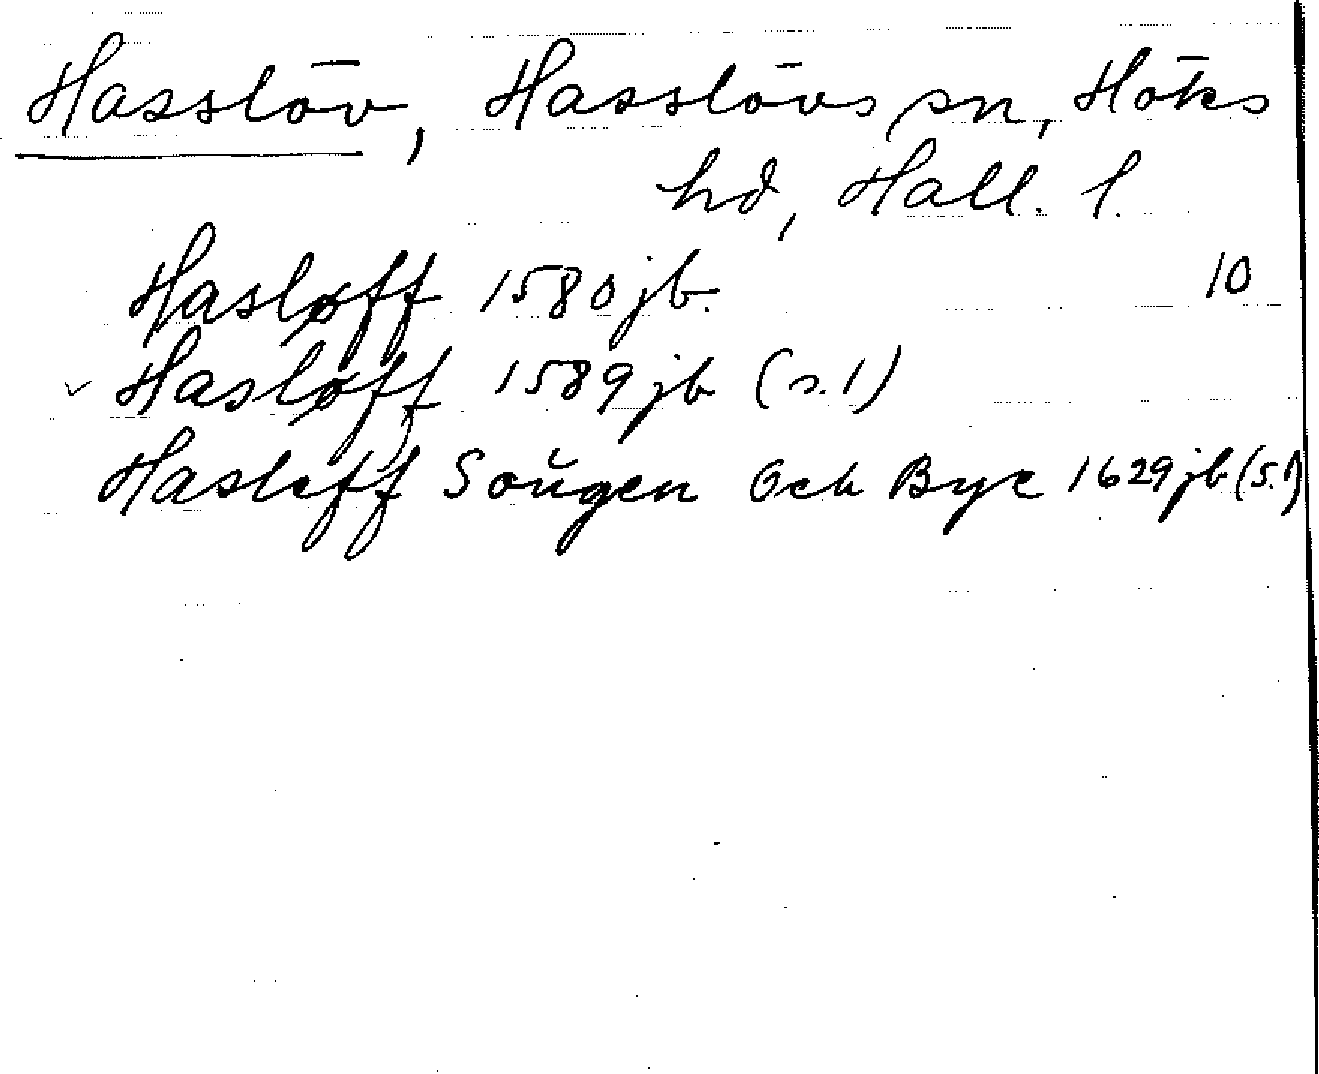 Hasslöv, Hasslövs sn, Höks
hd, Hall. l.
Hasløff 1580 jb. 10
✓ Hasløff 1589 jb (s. 1)
Hasleff Soŭgen Och Bye 1629 jb (S. 1)